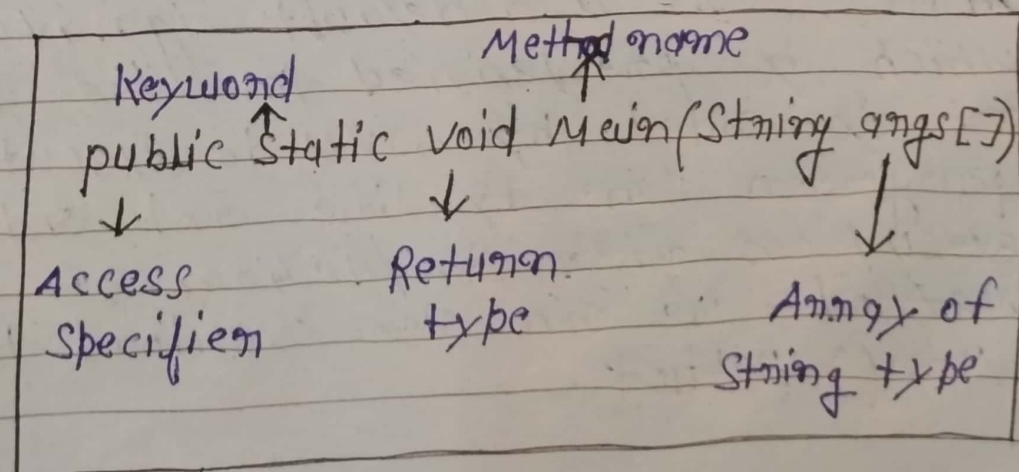 Method name
Keyword
public static void Main(String args[])
Access Return
Specifier type
Array of
String type